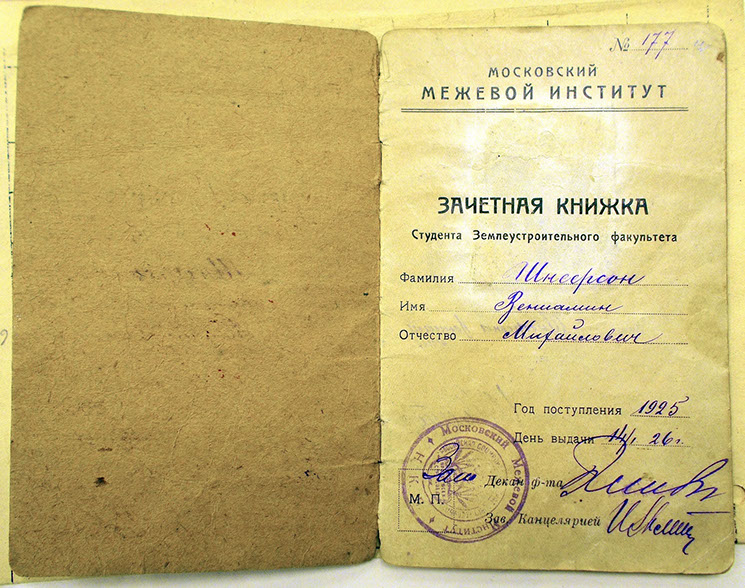 № 177
МОСКОВСКИЙ
МЕЖЕВОЙ ИНСТИТУТ
ЗАЧЕТНАЯ КНИЖКА
Студента Землеустроительного факультета
Фамилия Шнеерсон
Имя Вениамин
Отчество Михайлович
Год поступления 1925
День выдачи 14/I 26 г.
Зам Декан ф-та
М. П.
Зав. Канцелярией
Московский Межевой Институт